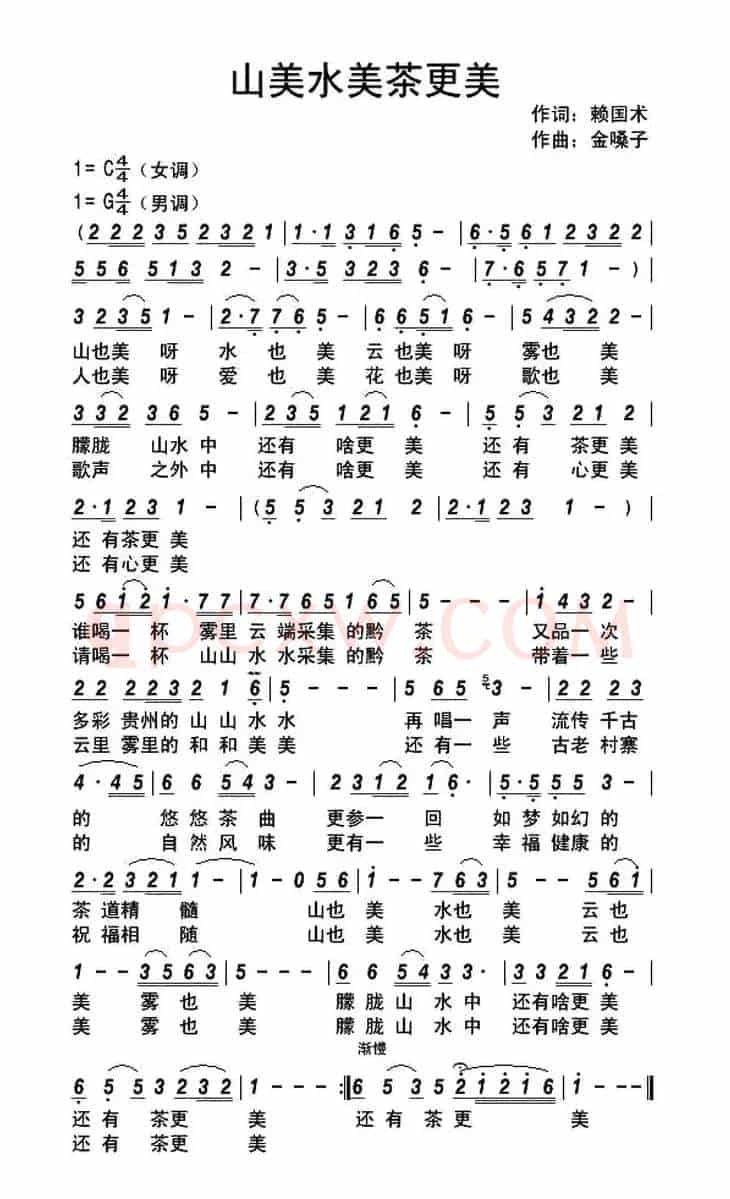 山美水美茶更美
作词：赖国术
作曲：金嗓子
1= C4/4（女调）
1= G4/4（男调）
(2 2 2 2 3 5 2 3 2 1 | 1 · 1 3 1 6 5 - | 6 · 5 6 1 2 3 2 2 |
5 5 6 5 1 3 2 - | 3 · 5 3 2 3 6 - | 7 · 6 5 7 1 - ) |
3 2 3 5 1 - | 2 · 7 7 6 5 - | 6 6 5 1 6 - | 5 4 3 2 2 - |
山也美 呀 水 也 美 云 也美 呀 雾也 美
人也美 呀 爱 也 美 花 也美 呀 歌也 美
3 3 2 3 6 5 - | 2 3 5 1 2 1 6 - | 5 5 3 2 1 2 - |
朦胧 山水 中 还有 啥更 美 还 有 茶更 美
歌声 之外 中 还有 啥更 美 还 有 心更 美
2 · 1 2 3 1 - | ( 5 5 3 2 1 2 | 2 · 1 2 3 1 - ) |
还 有茶更 美
还 有心更 美
5 6 1 2 1 · 7 7 | 7 · 7 6 7 6 5 1 6 5 | 5 - - - | 1 4 3 2 · |
谁喝一 杯 雾里 云 端采集 的黔 茶 又品 一 次
请喝一 杯 山山 水 水采集 的黔 茶 带着 一 些
2 2 2 2 2 3 2 1 6 | 5 - - - | 5 6 5 5 3 - | 2 2 2 3 |
多彩 贵州的 山 山 水 水 再 唱一 声 流传 千古
云里 雾里的 和 和 美 美 还 有一 些 古老 村寨
4 · 4 5 | 6 6 5 4 3 - | 2 3 1 2 1 6 · | 5 · 5 5 5 3 - |
的 悠 悠 茶 曲 更参一 回 如 梦 如幻 的
的 自 然 风 味 更有一 些 幸 福 健康 的
2 · 2 3 2 1 1 - | 1 - 0 5 6 | 1 - - 7 6 3 | 5 - - 5 6 1 |
茶 道精 髓 山也 美 水也 美 云 也
祝 福相 随 山也 美 水也 美 云 也
1 - - 3 5 6 3 | 5 - - - | 6 6 5 4 3 3 · | 3 3 2 1 6 - |
美 雾 也 美 朦 胧 山 水 中 还有啥更 美
美 雾 也 美 朦 胧 山 水 中 还有啥更 美
渐慢
6 5 5 3 2 3 2 | 1 - - - :|| 6 5 3 5 2 1 2 1 6 | 1 - - ||
还 有 茶更 美 还 有 茶 更 美
还 有 茶更 美